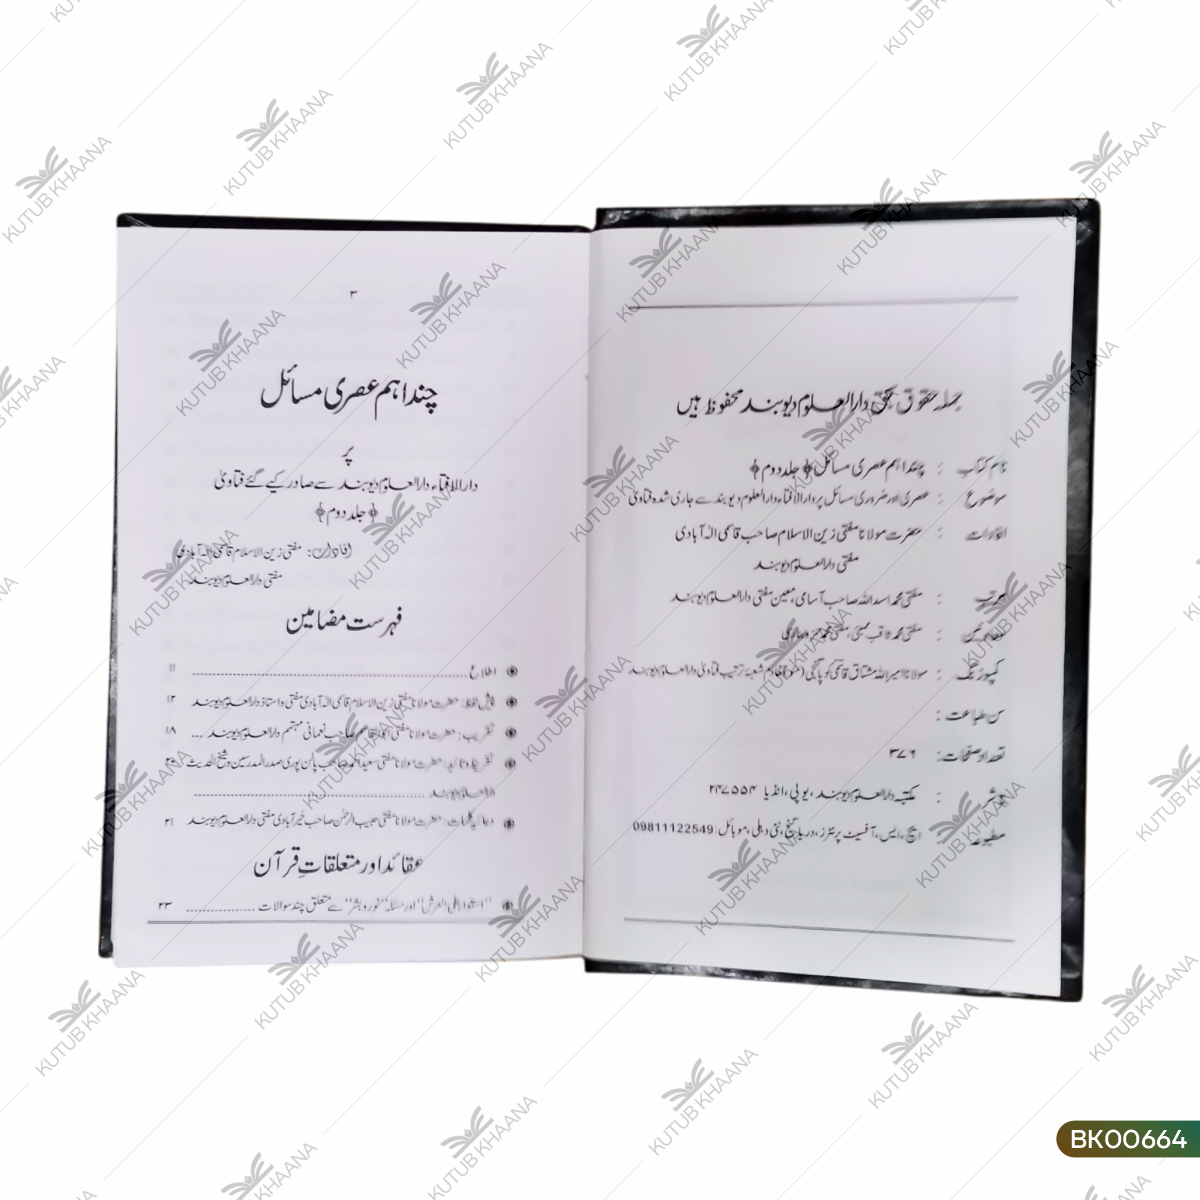 جملہ حقوق بحق دارالعلوم دیوبند محفوظ ہیں
نام کتاب : چند اہم عصری مسائل ﴿جلد دوم﴾
موضوع : عصری اور ضروری مسائل پر دارالافتاء دارالعلوم دیوبند سے جاری شدہ فتاویٰ
افادات : حضرت مولانا مفتی زین الاسلام صاحب قاسمی الٰہ آبادی
مفتی دارالعلوم دیوبند
مرتب : مفتی محمد اسد اللہ صاحب آسامی، معین مفتی دارالعلوم دیوبند
: مفتی محمد مفتی محمد
کمپوزنگ : مولانا اسیر اللہ مشتاق قاسمی کوپاگنجی (مئو) خادم شعبۂ ترتیب فتاویٰ دارالعلوم دیوبند
سن طباعت :
تعداد صفحات: ۳۷۶
ناشر : مکتبہ دارالعلوم دیوبند، یوپی، انڈیا ۲۴۷۵۵۴
مطبوعہ : ایچ، ایس، آفسیٹ پرنٹرز، دریا گنج، نئی دہلی، موبائل: 09811122549
۳
چند اہم عصری مسائل
پر
دارالافتاء دارالعلوم دیوبند سے صادر کیے گئے فتاویٰ
﴿جلد دوم﴾
افادات: مفتی زین الاسلام قاسمی الٰہ آبادی
مفتی دارالعلوم دیوبند
فہرست مضامین
اطلاع ........ ۱۱
پیش لفظ: حضرت مولانا مفتی زین الاسلام قاسمی الٰہ آبادی مفتی و استاذ دارالعلوم دیوبند ۱۲
تقریب: حضرت مولانا مفتی ابوالقاسم صاحب نعمانی مہتمم دارالعلوم دیوبند ... ۱۸
تقریظ و تائید: حضرت مولانا مفتی سعید احمد صاحب پالن پوری صدر المدرسین و شیخ الحدیث ۲۰
دارالعلوم دیوبند ........
دعائیہ کلمات: حضرت مولانا مفتی حبیب الرحمٰن صاحب خیرآبادی مفتی دارالعلوم دیوبند ۲۱
عقائد اور متعلقاتِ قرآن
"استواء علی العرش" اور مسئلہ "نور و بشر" سے متعلق چند سوالات ........ ۲۳
KUTUB KHAANA
BK00664